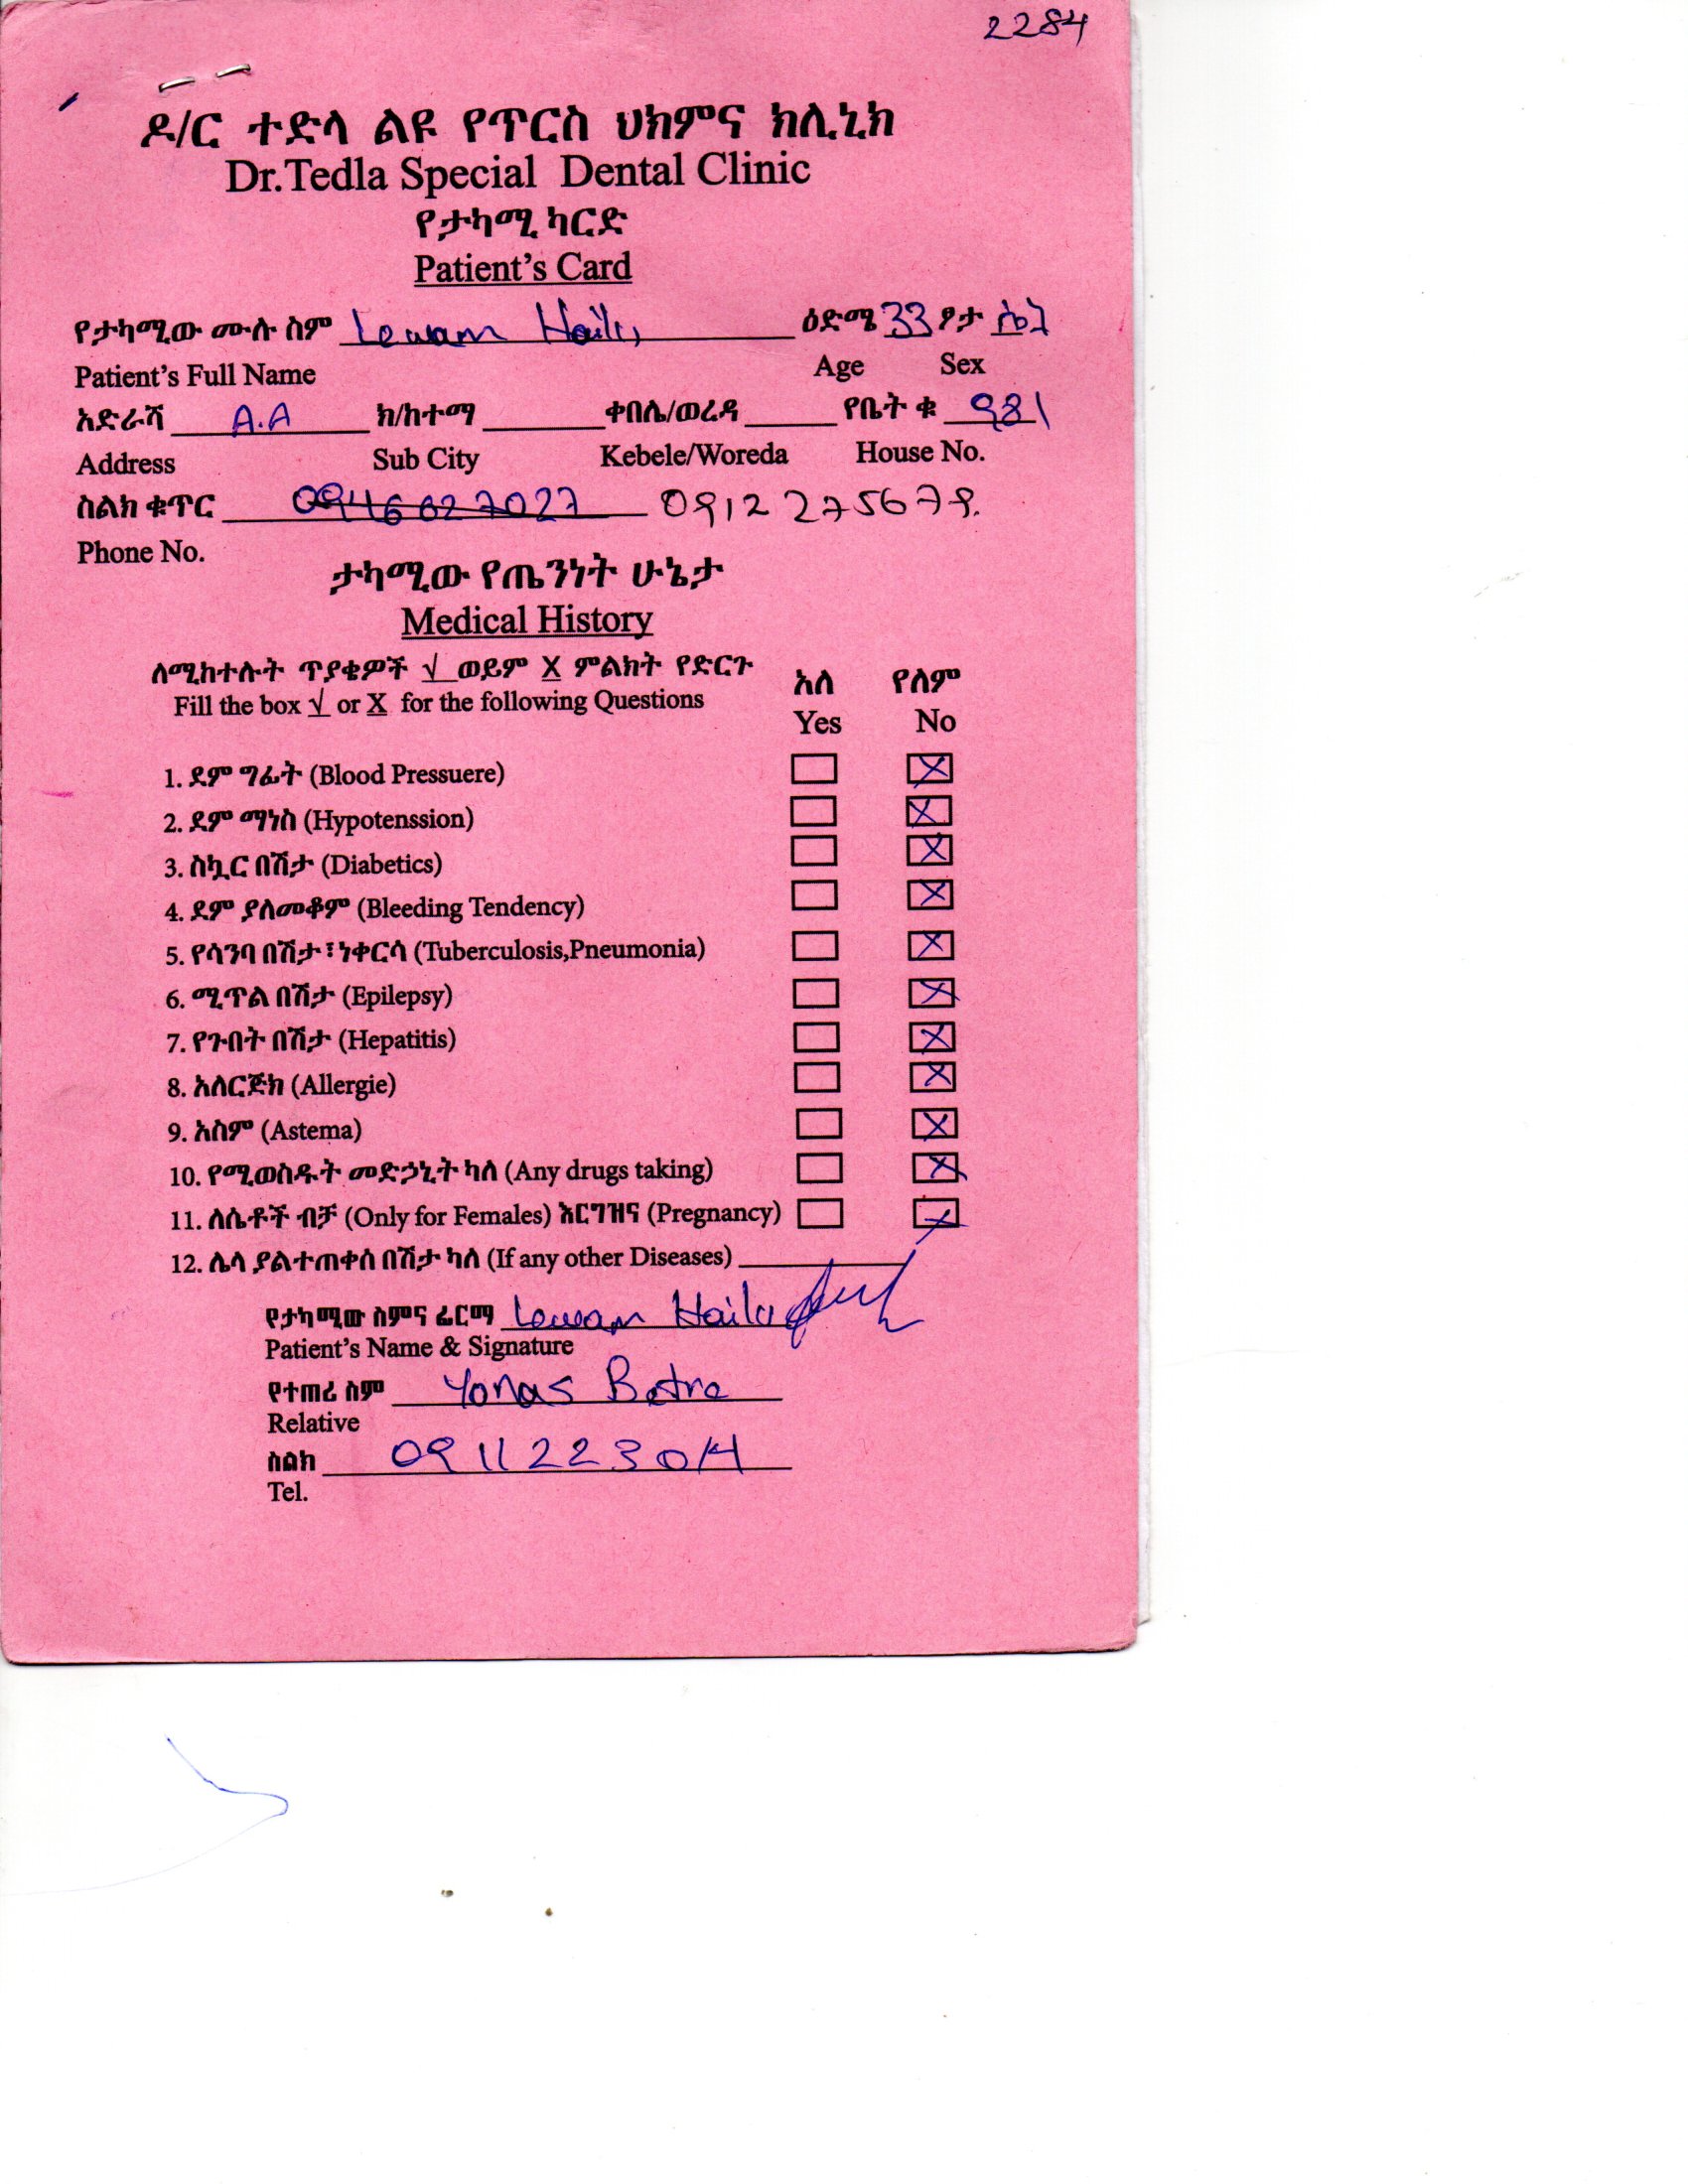 2284
ዶ/ር ተድላ ልዩ የጥርስ ህክምና ክሊኒክ
Dr.Tedla Special Dental Clinic
የታካሚ ካርድ
Patient's Card
የታካሚው ሙሉ ስም Lewam Hailu ዕድሜ 33 ፆታ
Patient's Full Name Age Sex
አድራሻ A.A ክ/ከተማ ቀበሌ/ወረዳ የቤት ቁ 981
Address Sub City Kebele/Woreda House No.
ስልክ ቁጥር 0912 275679.
Phone No.
ታካሚው የጤንነት ሁኔታ
Medical History
ለሚከተሉት ጥያቄዎች √ ወይም X ምልክት የድርጉ አለ የለም
Fill the box √ or X for the following Questions Yes No
1. ደም ግፊት (Blood Pressuere) X
2. ደም ማነስ (Hypotenssion) X
3. ስኳር በሽታ (Diabetics) X
4. ደም ያለመቆም (Bleeding Tendency) X
5. የሳንባ በሽታ፣ነቀርሳ (Tuberculosis,Pneumonia) X
6. ሚጥል በሽታ (Epilepsy) X
7. የጉበት በሽታ (Hepatitis) X
8. አለርጅክ (Allergie) X
9. አስም (Astema) X
10. የሚወስዱት መድኃኒት ካለ (Any drugs taking) X
11. ለሴቶች ብቻ (Only for Females) እርግዝና (Pregnancy) X
12. ሌላ ያልተጠቀሰ በሽታ ካለ (If any other Diseases)
የታካሚው ስምና ፊርማ Lewam Hailu
Patient's Name & Signature
የተጠሪ ስም Yonas Betre
Relative
ስልክ 0911223014
Tel.